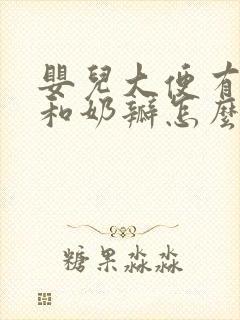 嬰兒大便有
和奶瓣怎麼
糖果淼淼